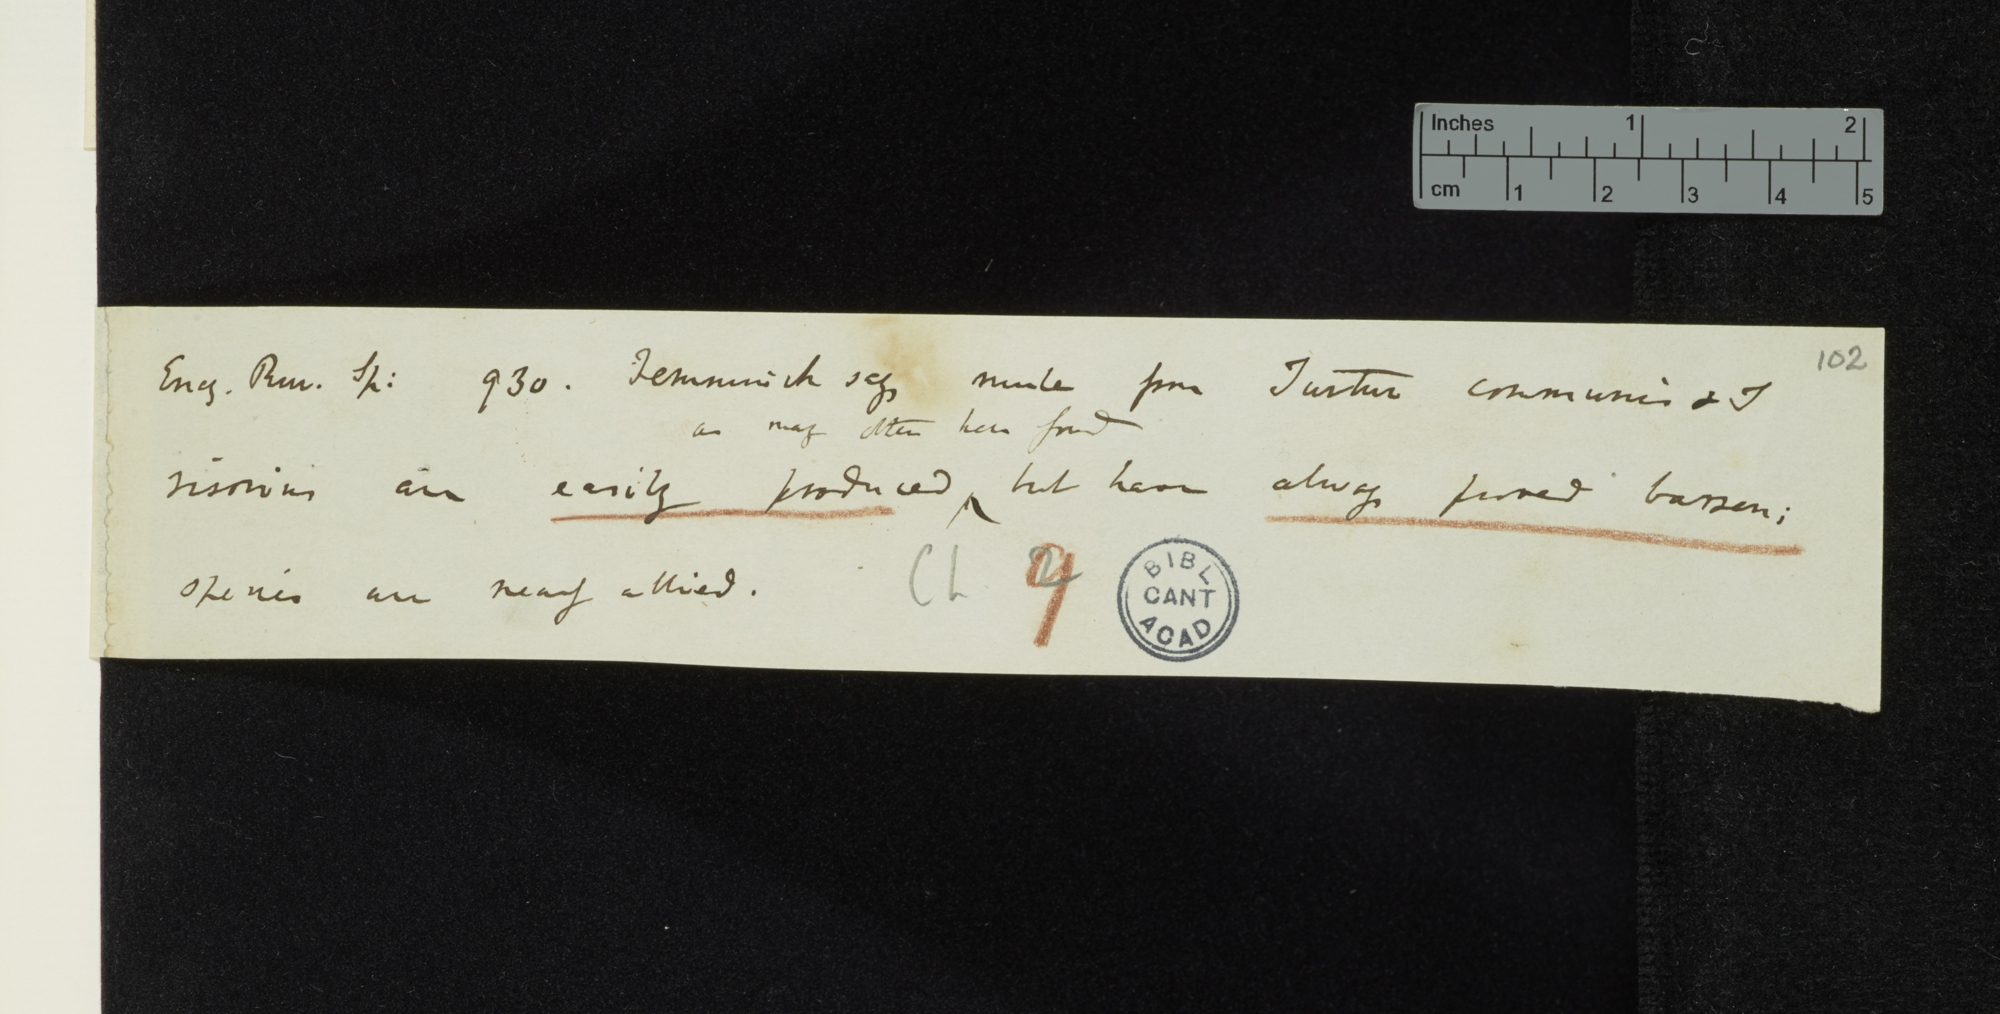 102
Ency. Rur. Sp: 930. Temminick says mule from Turtur communis & T
as may often been found
risorius are easily produced but have always proved barren;
species are nearly allied.
Ch 9
BIBL
CANT
ACAD
Inches 1 2
cm 1 2 3 4 5